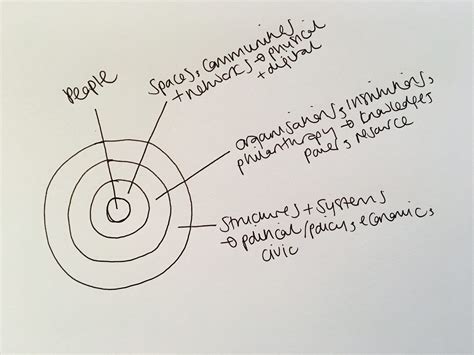 People
Spaces, communities
+ networks → physical
+ digital
organisations, institutions,
philanthropy → knowledges
power, resource
Structures + Systems
→ political/policy, economic,
civic